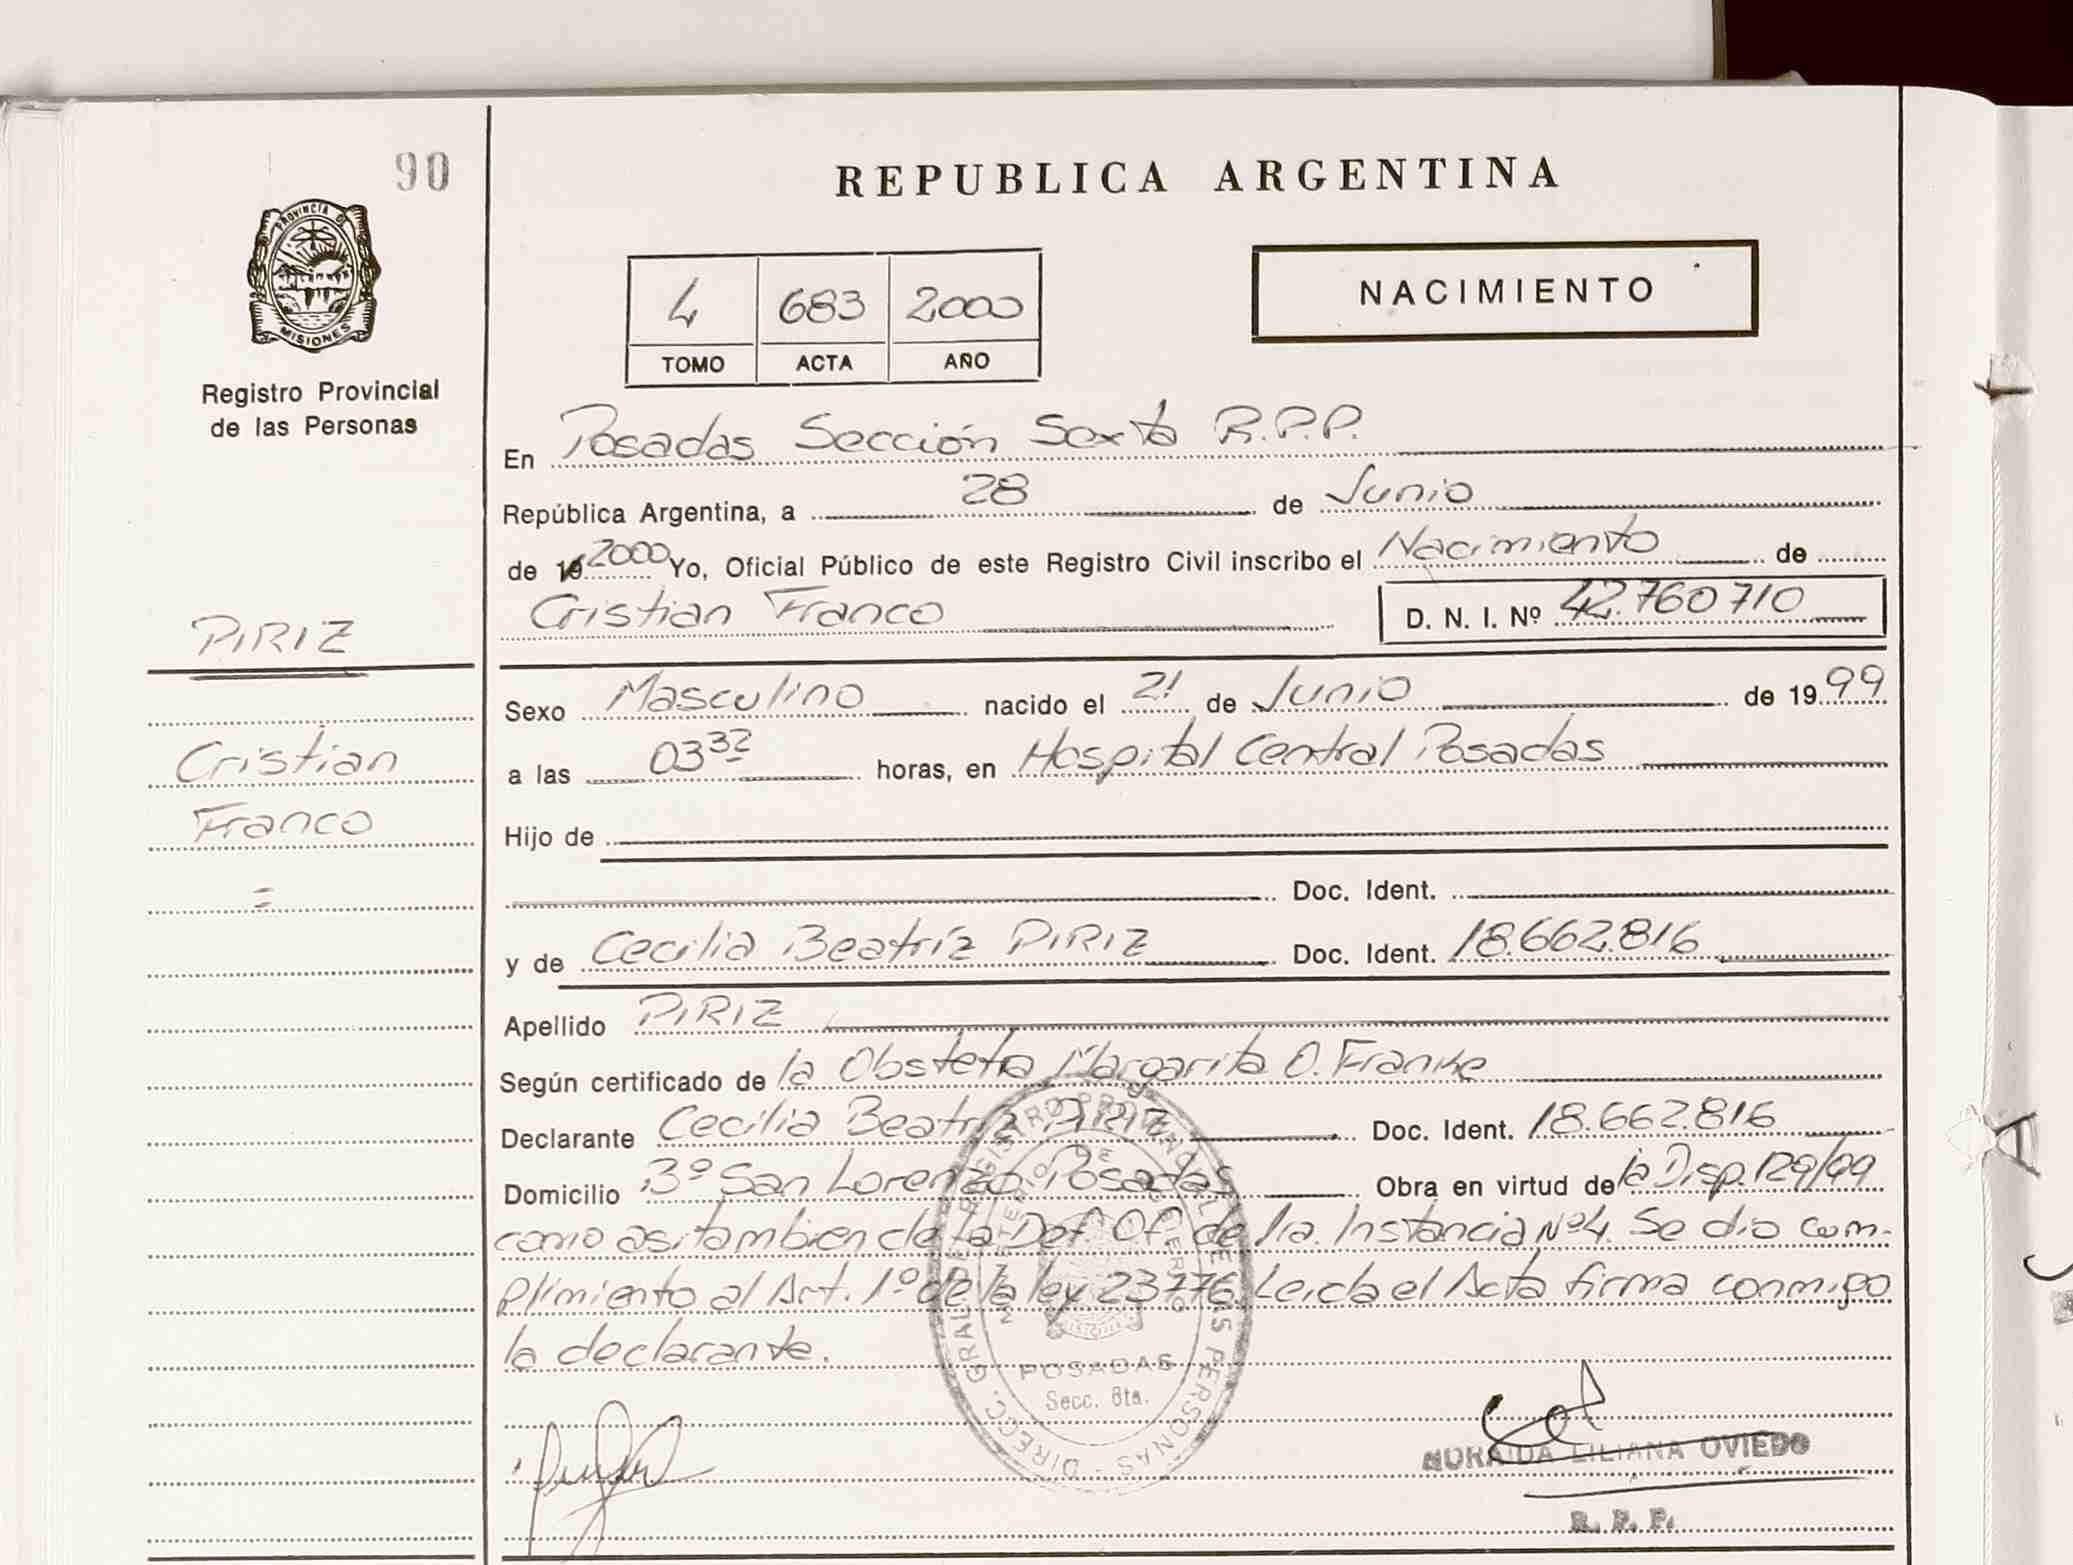 90
REPUBLICA ARGENTINA
PROVINCIA DE
MISIONES
Registro Provincial
de las Personas
4 683 2000
TOMO ACTA AÑO
NACIMIENTO
En Posadas Sección Sexta R.P.P.
República Argentina, a 28 de Junio
de 19 2000 Yo, Oficial Público de este Registro Civil inscribo el Nacimiento de
Cristian Franco D. N. I. Nº 42.760710
PIRIZ
Cristian
Franco
=
Sexo Masculino nacido el 21 de Junio de 1999
a las 03 32 horas, en Hospital Central Posadas
Hijo de
Doc. Ident.
y de Cecilia Beatríz PIRIZ Doc. Ident. 18.662.816
Apellido PIRIZ
Según certificado de la Obstetra Margarita O. Franke
Declarante Cecilia Beatriz PIRIZ Doc. Ident. 18.662.816
Domicilio Bº San Lorenzo Posadas Obra en virtud de la Disp. 129/99
como asi tambien de la Def. Of. de 1ra. Instancia Nº 4. Se dio cum-
plimiento al Art. 1º de la ley 23776. Leida el Acta firma conmigo
la declarante.
DIRECC. GRAL. DE REGISTRO PROVINCIAL DE LAS PERSONAS
MINISTERIO DE GOBIERNO
POSADAS
Secc. 6ta.
NORAIDA LILIANA OVIEDO
R. P. P.